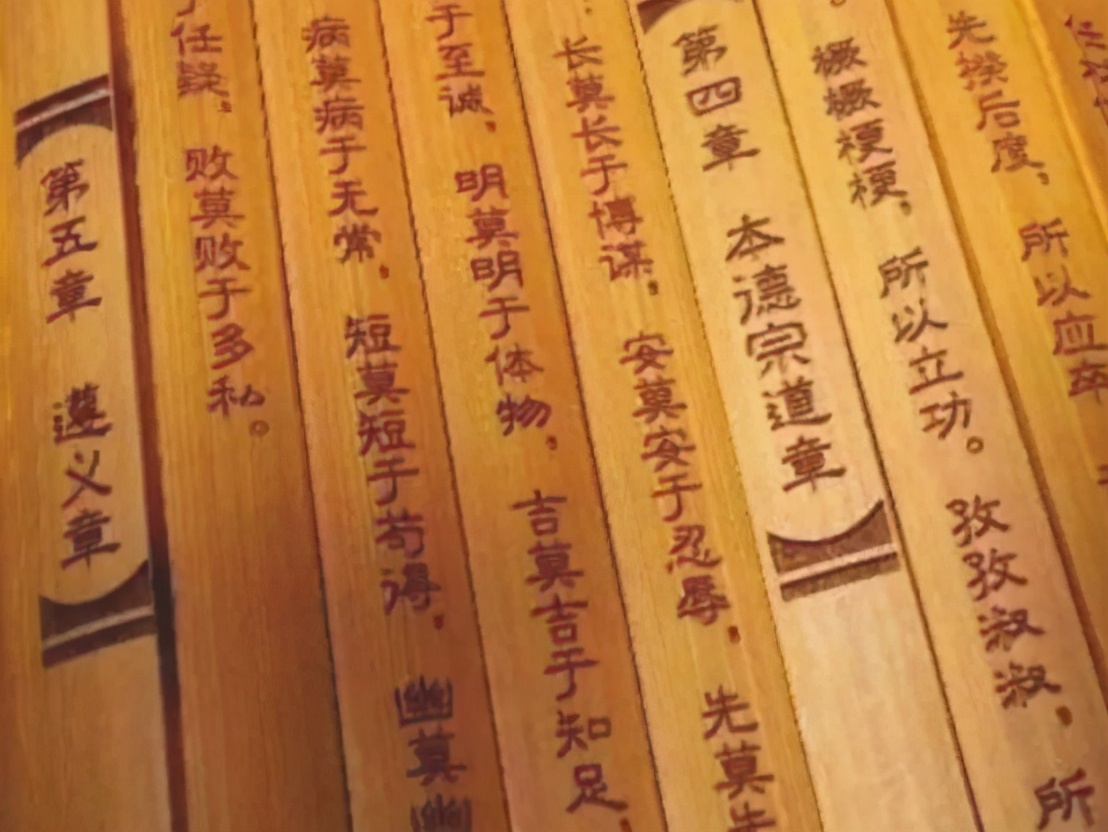 先揆后度，所以应卒
橛橛梗梗，所以立功。孜孜淑淑，所
第四章 本德宗道章
长莫长于博谋，安莫安于忍辱，先莫先
于至诚，明莫明于体物，吉莫吉于知足，
病莫病于无常，短莫短于苟得，幽莫幽
于任疑，败莫败于多私。
第五章 遵义章